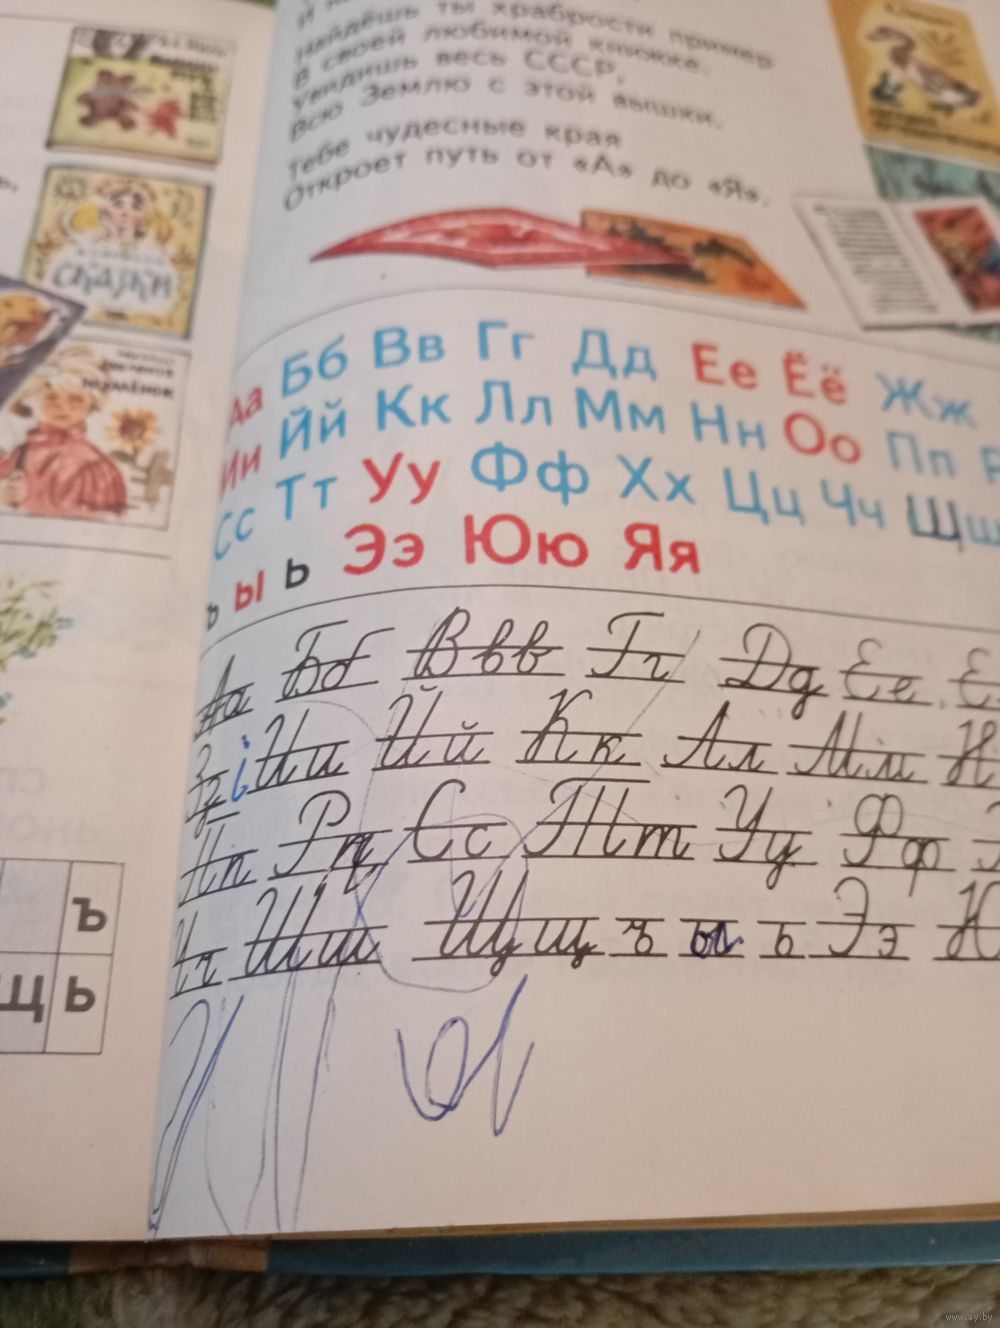 найдёшь ты храбрости пример
В своей любимой книжке.
увидишь весь СССР,
Всю Землю с этой вышки.
Тебе чудесные края
Откроет путь от «А» до «Я».
СКАЗКИ
Аа Бб Вв Гг Дд Ее Ёё Жж
Ии Йй Кк Лл Мм Нн Оо Пп
Сс Тт Уу Фф Хх Цц Чч Шш
ъ ы ь Ээ Юю Яя
Аа Бб Ввв Гг Дд Ее
Зз i Ии Йй Кк Лл Мм Н
Пп Рр Сс Тт Уу Фф
Чч Шш Щщ ъ ы ь Ээ Ю
Ъ
Щ Ь
www.ay.by